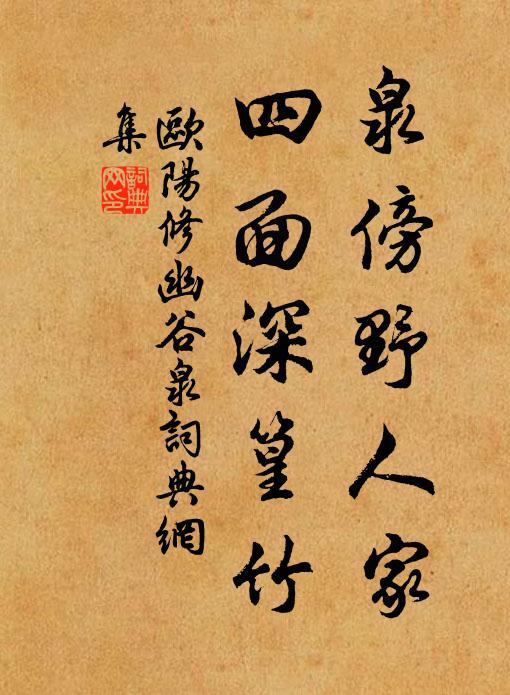 泉傍野人家
四面深篁竹
歐陽修幽谷泉詞典網
集
詞典網印